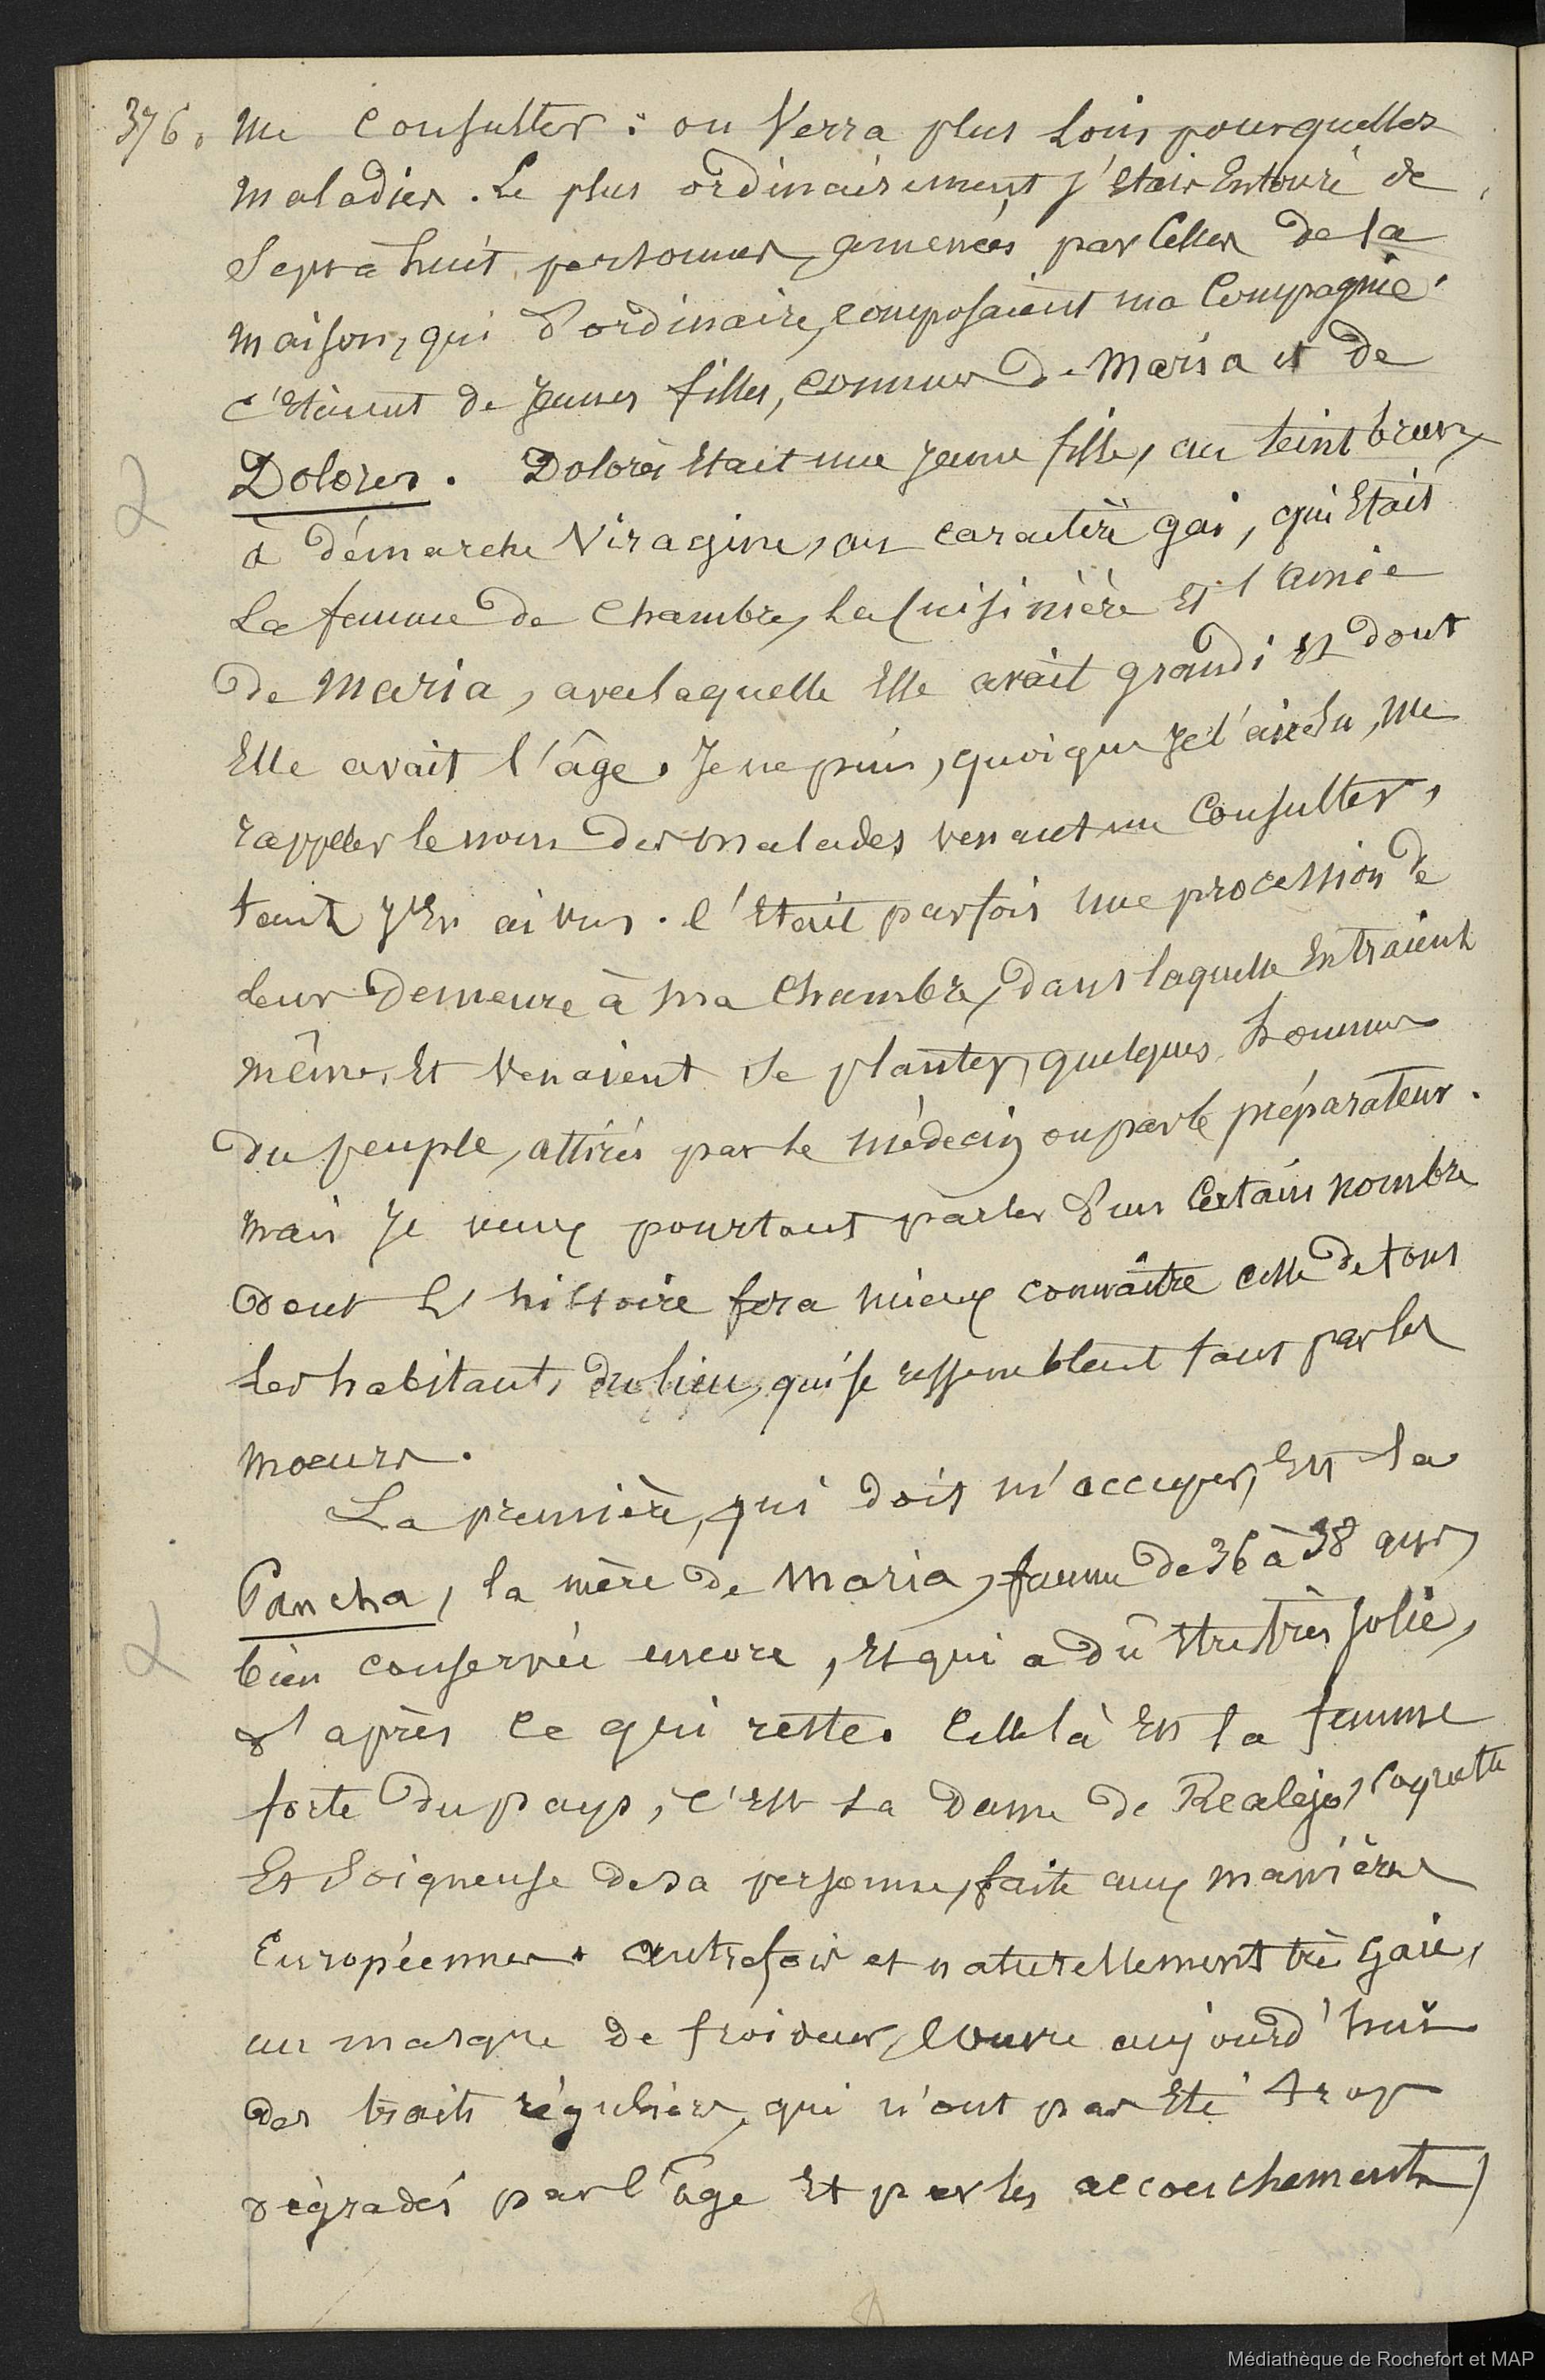 376. me consulter : on verra plus loin pour quelles
maladies. Le plus ordinairement j'étais entouré de
sept à huit personnes, amenées par celles de la
maison, qui d'ordinaire, composaient ma compagnie.
c'étaient de jeunes filles, connues de Maria et de
Dolores. Dolorès était une jeune fille, au teint brun,
à démarche viragine, au caractère gai, qui était
la femme de chambre, la cuisinière et l'amie
de Maria, avec laquelle elle avait grandi et dont
elle avait l'âge. Je ne puis, quoique je l'aie su, me
rappeler le nom des malades venant me consulter,
tant j'en ai vus. C'était parfois une procession de
leur demeure à ma chambre, dans laquelle entraient
même, et venaient se planter, quelques hommes
du peuple, attirés par le médecin ou par le préparateur.
mais je veux pourtant parler d'un certain nombre
dont l'histoire fera mieux connaître celle de tous
les habitants du lieu, qui se ressemblent tous par les
moeurs.
La première, qui doit m'occuper, est la
Pancha, la mère de Maria, femme de 36 à 38 ans,
bien conservée encore, et qui a dû être très jolie,
d'après ce qui reste. Celle là est la femme
forte du pays, c'est la Dame de Realejo, coquette
et soigneuse de sa personne, faite aux manières
Européennes. autrefois et naturellement très gaie,
un masque de froideur, couvre aujourd'hui
des traits réguliers, qui n'ont pas été trop
dégradés par l'âge et par les accouchements,
Médiathèque de Rochefort et MAP